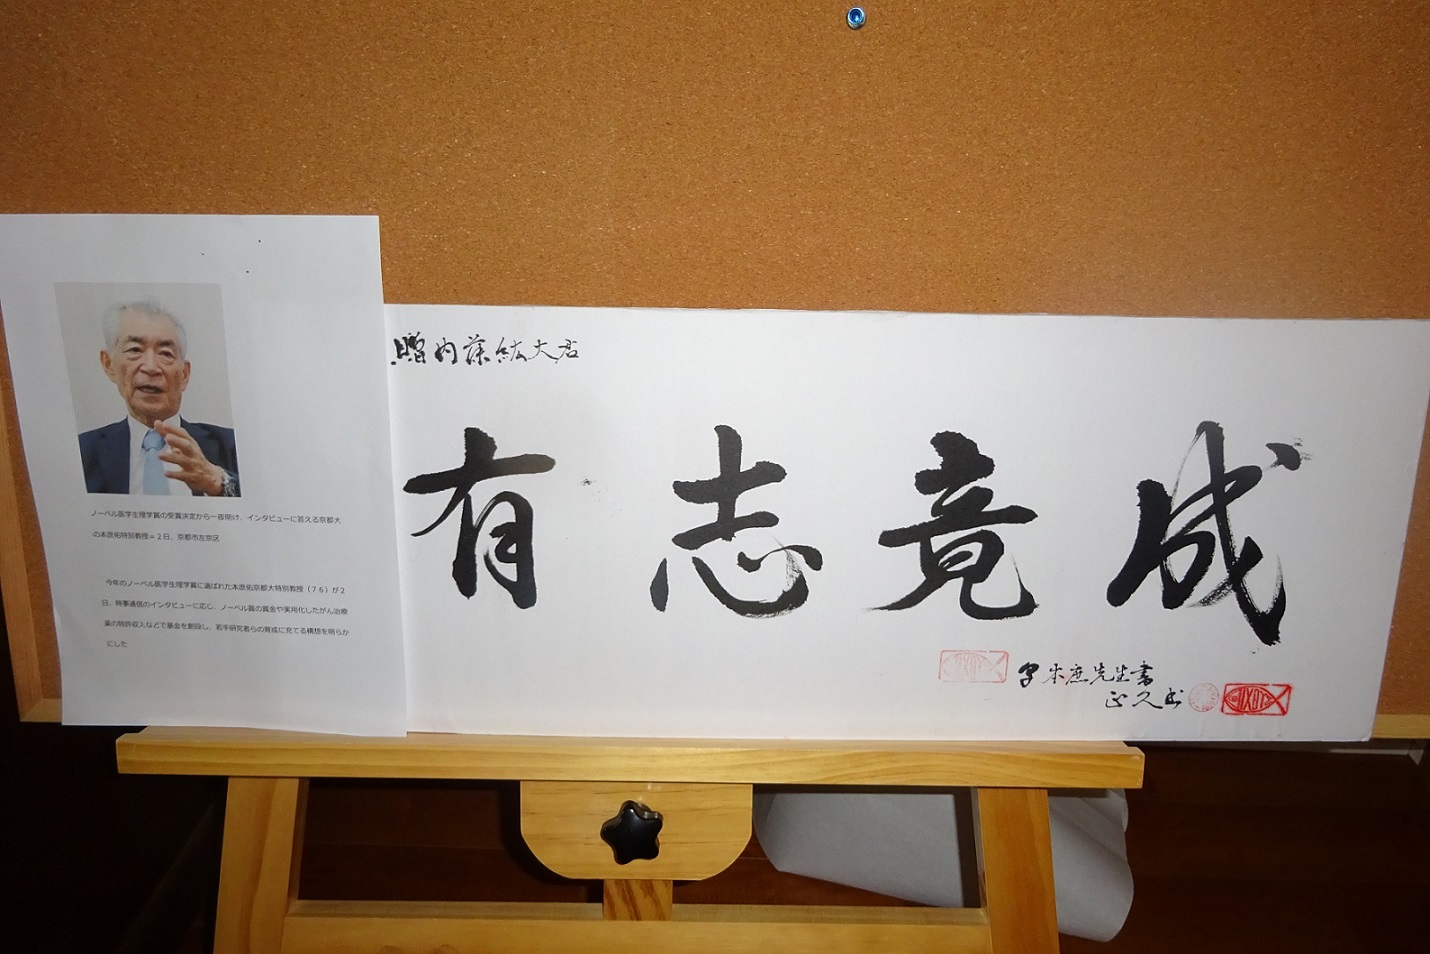 ノーベル医学生理学賞の受賞決定から一夜明け、インタビューに答える京都大
の本庶佑特別教授＝２日、京都市左京区
今年のノーベル医学生理学賞に選ばれた本庶佑京都大特別教授（７６）が２
日、時事通信のインタビューに応じ、ノーベル賞の賞金や実用化したがん治療
薬の特許収入などで基金を創設し、若手研究者らの育成に充てる構想を明らか
にした
贈内藤紘大君
有志竟成
本庶先生書
正久书